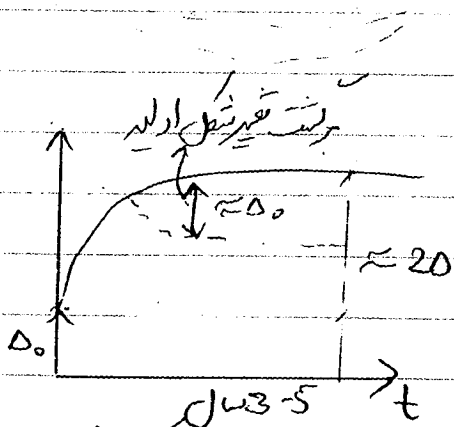 برگشت تغییر شکل اولیه
≈Δ₀
≈ 2Δ
Δ₀
3-5 سال
t